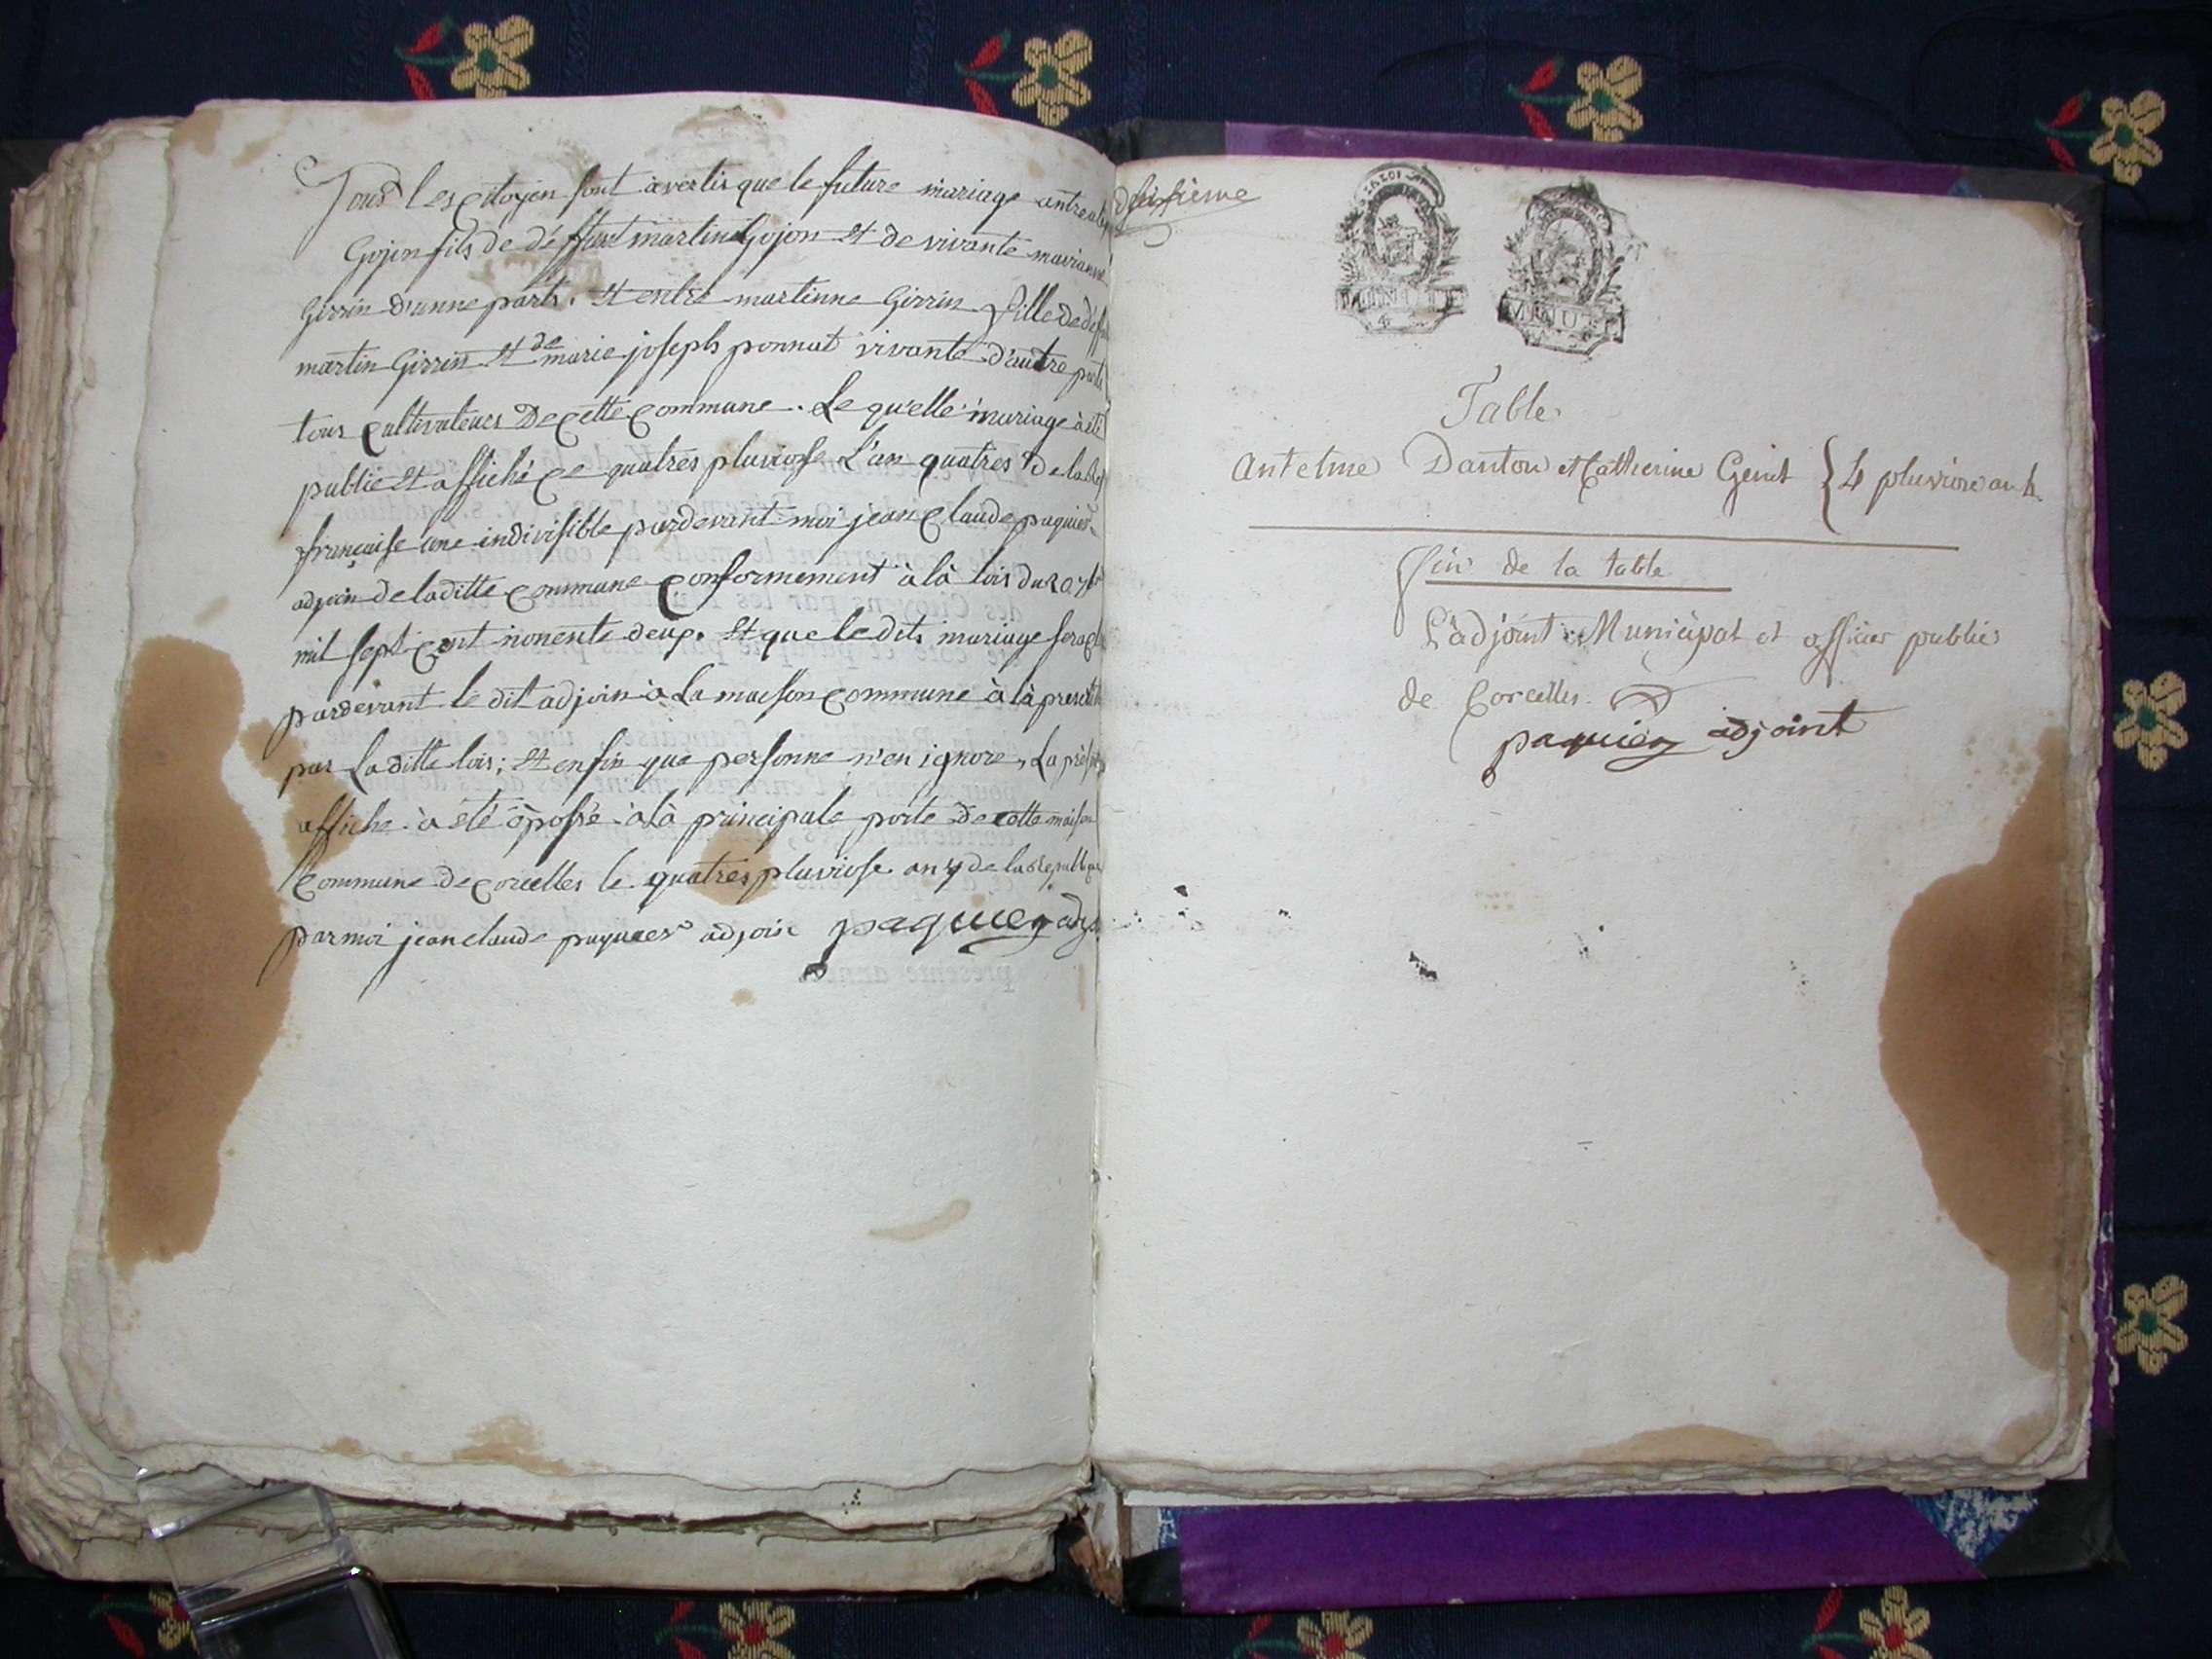 Tous les citoyen sont avertis que le future mariage antre
Gojon fils de déffunt martin Gojon et de vivante marianne
Girrin d'unne parts. Et entre martinne Girrin fille de déf
martin Girrin et de marie joseph ponnat vivante d'autre parts
tous cultivateurs De cette commune. Le qu'elle mariage à été
publié et affiché ce quatres pluviose L'an quatres de la Rep
française une indivisible pardevant moi jean Claude paquier
adjoin de laditte commune conformement à là lois du 20 7br
mil sept cent nonente deux. Et que le dits mariage sera
pardevant le dit adjoin à La maison commune à là
par Laditte lois; Et enfin que personne n'en ignore, La
affiche à été öposée à là principale porte de cette maison
Commune de corcelles le quatres pluviose an 4 de la
par moi jean claude paquier adjoin paquier adj.
MINUTE MINUTE
4
Table.
Antelme Danton et Catherine Genit { 4 pluviose an 4.
fin de la table
L'adjoint Municipal et officier public
de Corcelles.
paquier adjoint